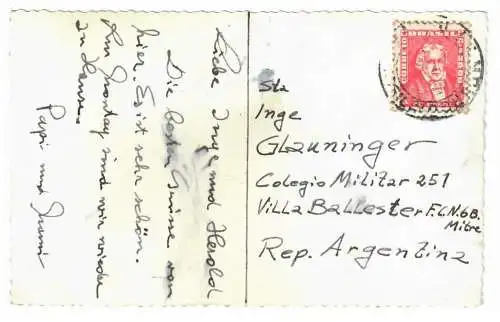 Liebe Inge und Harold
Die besten Grüsse von
hier. Es ist sehr schön.
Am Montag sind wir wieder
zu Hause.
Papi und Mumi
Sta
Inge
Glauninger
Colegio Militar 251
Villa Ballester F.C.N.GB.
Mitre
Rep. Argentina
BRASIL CORREIO